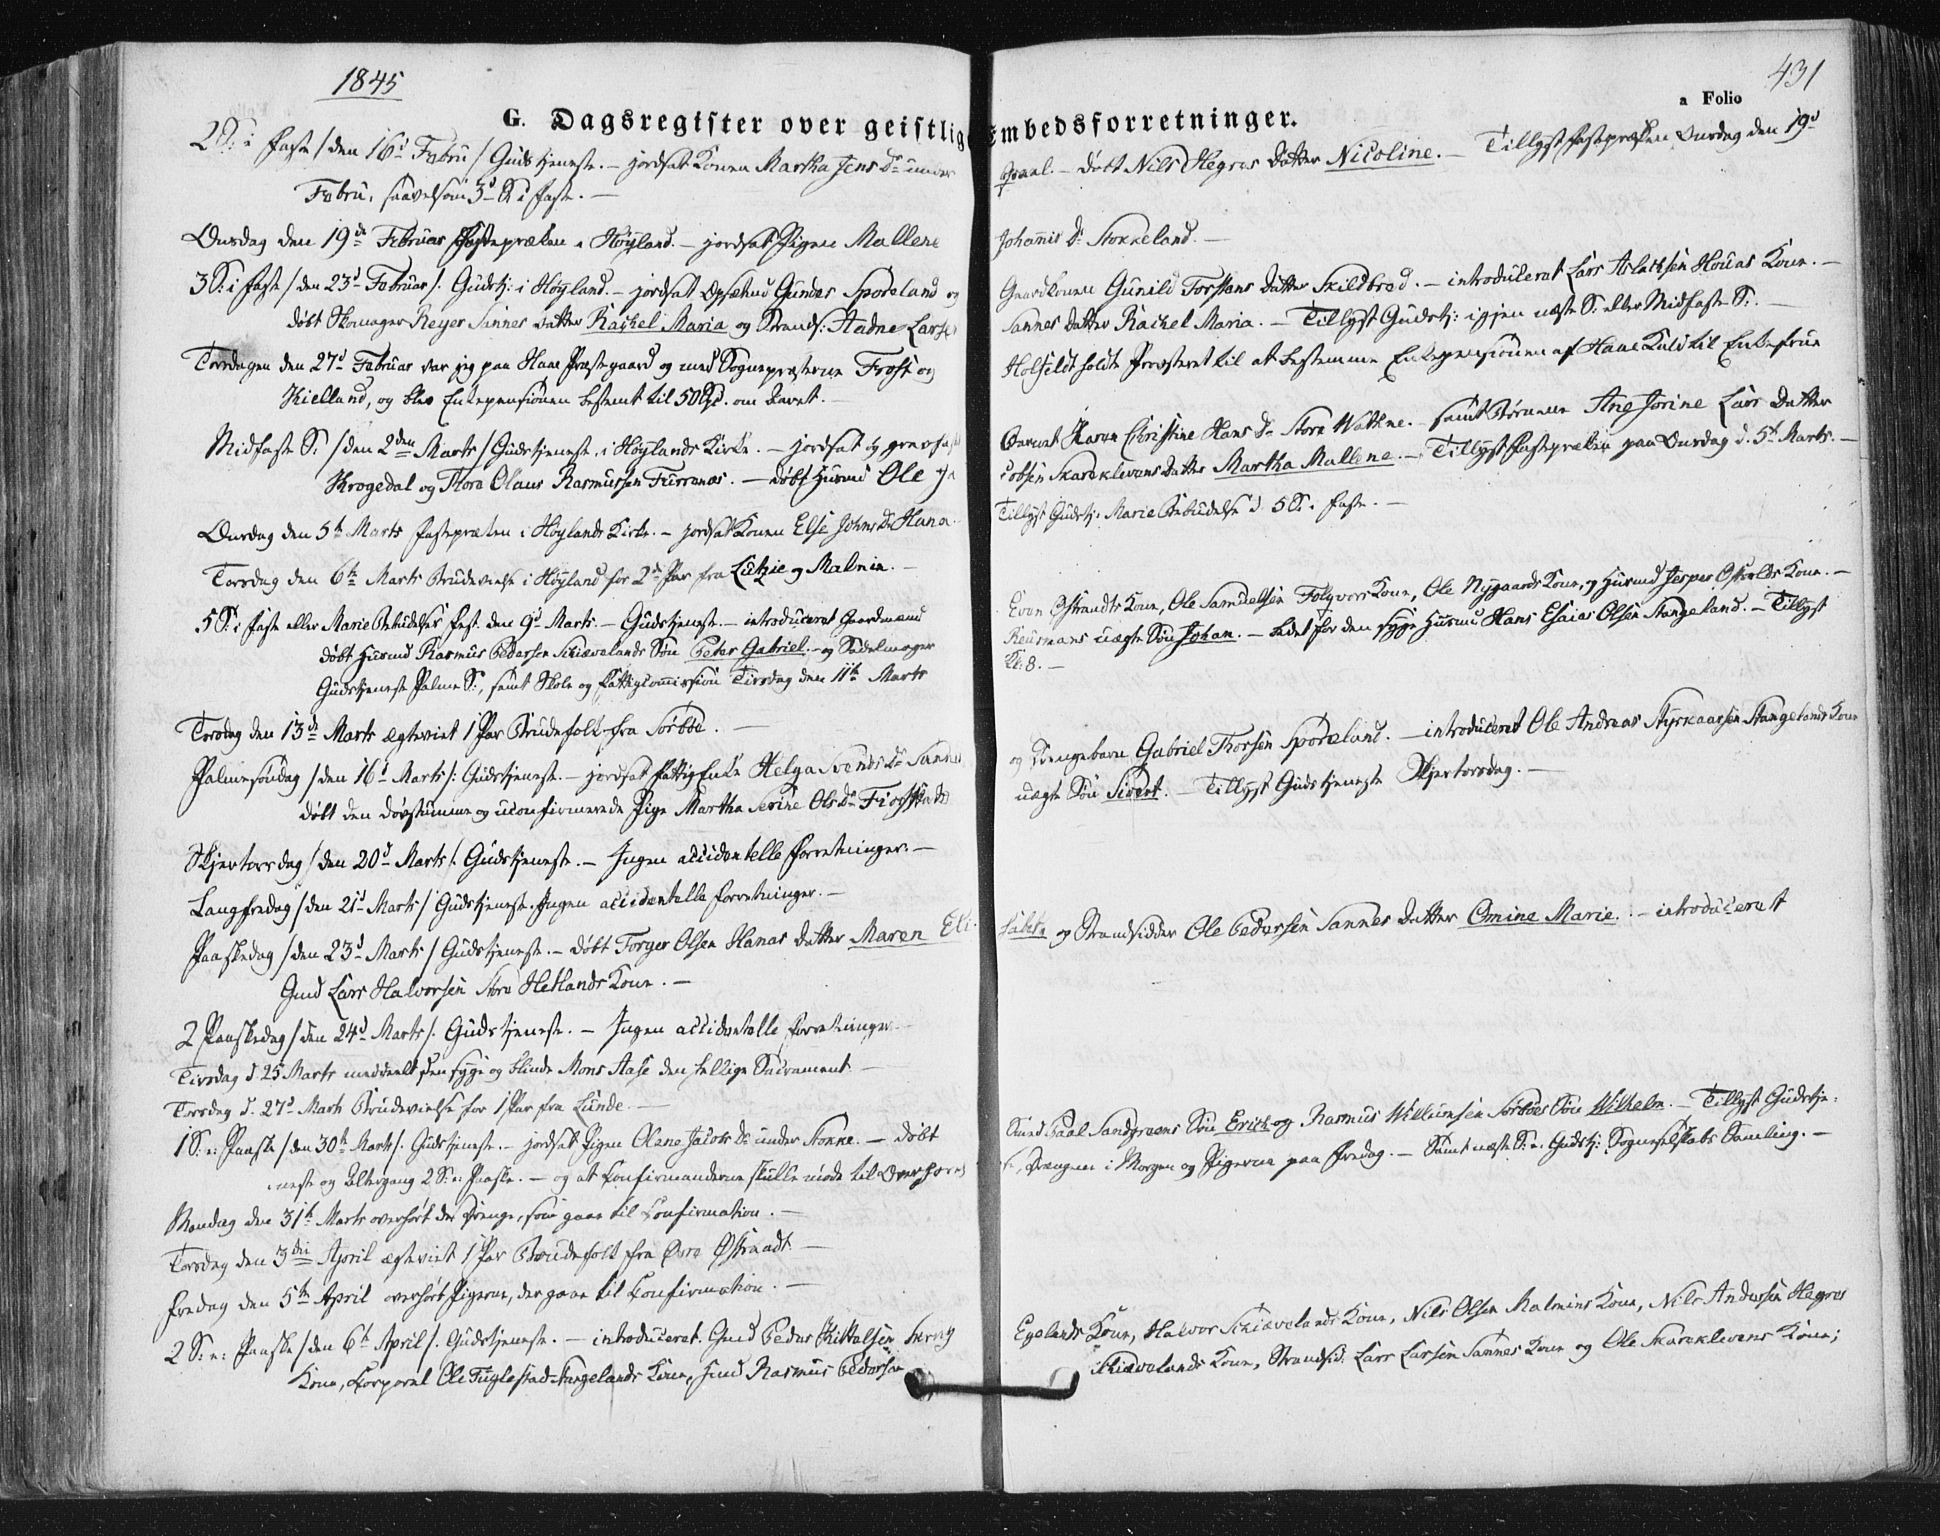 1845
431
a Folio
G. Dagsregister over geistlige Embedsforretninger.
2 S: i Faste /: den 16d Febru / Gudstjeneste. — jordsat Konen Martha Jens D: under
Febru, saavelsom 3d S: i Faste. —
Onsdag den 19de Februar Fastepræken i Høyland. — jordsat Pigen Mallene
3 S: i Faste / den 23d Februar /: Gudstj: i Høyland. — jordsat Opsætmd Gunder Spodeland og
døbt Skomager Reyer Sannes Datter Rachel Maria og Strands: Aadne Larse
Torsdagen den 27d Februar var jeg paa Haae Præstegaard og med Sognepræsterne Frost og
Kielland, og blev Enkepensionen bestemt til 50 Spd. om Aaret. —
Midfaste S: / den 2den Marts / Gudstjeneste i Høylands Kirke. — jordsat og
Krogedal og Thora Olaus Rasmussen Furrenæs. — døbt Husmd Ole
Onsdag den 5te Marts Fastepræken i Høylands Kirke. — jordsat Konen Else Johns Dr Hana
Torsdag den 6te Marts Brudevielse i Høyland for 2de Par fra Lutzie og Malmin. —
5 S: i Faste eller Marie Bebudelses Fest den 9d Marts. — Gudstjeneste. — introduceret Gaardmand
døbt Husmd Rasmus Pedersen Skiævelands Søn Peder Gabriel. — og Sadelmager
Gudstjeneste Palme S:, samt Skole og Fattigcommission Tirsdag den 11te Marts
Torsdag den 13de Marts ægteviet 1 Par Brudefolk fra Sørbøe. —
Palmesøndag / den 16d Marts /: Gudstjeneste. — jordsat Fattig Enke Helga Svends Dr Sannes
døbt den døvstumme og uconfirmerede Pige Martha Serine Ols Dr
Skjertorsdag / den 20d Marts /: Gudstjeneste. — Ingen accidentelle Forretninger. —
Langfredag / den 21d Marts / Gudstjeneste. Ingen accidentelle Forretninger. —
Paaskedag / den 23d Marts / Gudstjeneste. — døbt Torger Olsen Hanas Datter Maren Eli-
Gmd Lars Halvorsen Store Hetlands Kone. —
2 Paaskedag / den 24d Marts /: Gudstjeneste. — Ingen accidentelle Forretninger —
Tirsdag d 25 Marts meddeelt den syge og blinde Mons Aase den hellige Sacrament. —
Torsdag d. 27d Marts Brudevielse for 1 Par fra Lunde. —
1 S: e: Paaske / den 30te Marts /: Gudstjeneste. — jordsat Pigen Olene Jacobs Dr under Stokke. — døbt
neste og Altergang 2 S: e: Paaske. — og at Confirmanderne skulle møde til Overhørelse
Mandag den 31te Marts overhørt de Drenge, som gaae til Confirmation. —
Torsdag den 3die April ægteviet 1 Par Brudefolk fra Øvre Østraadt —
Fredag den 5te April overhørt Pigerne, der gaae til Confirmation. —
2 S: e: Paaske / den 6te April /: Gudstjeneste. — introduceret. Gmd Peder Kittelsen
Kone, Corporal Ole Fuglestad Stangelands Kone, Husmd Rasmus Pedersen
— døbt Nils Hegres Datter Nicoline. — Tillyst Fasteprækken Onsdag den 19d
Johannis D: Stokkeland. —
Gaardkonen Gunild Torstens Datter Skildbred. — introduceret Lars Aslachsen Houas Kone. —
Sannes Datter Rachel Maria. — Tillyst Gudstj: igjen næste S: eller Midfaste S: —
Holfeldt holdte Provsteret til at bestemme Enkepensionen af Haae Kald til Enkefrue
Karen Christine Hans Dr Store Wathne. — samt Børnene Ane Jorine Lars Datter
cobsen Skareklevens Datter Martha Mallene. — Tillyst Fasteprækn paa Onsdag d. 5te Marts. —
Tillyst Gudstj: Marie Bebudelse d 5 S: i Faste. —
Even Østraadts Kone, Ole Samuelsen Folgvors Kone, Ole Nygaards Kone, og Husmd Jesper Kone. —
uægte Søn Johan. — bedet for den syge Husmd Hans Esaias Olsen Stangeland. — Tillyst
Kl: 8. —
og Drengebarn Gabriel Thorsen Spodeland. — introduceret Ole Andreas Styrkaarsen Stangelands Kone
uægte Søn Sivert. — Tillyst Gudstjeneste Skjertorsdag. —
sabeth og Strandsidder Ole Pedersen Sannes Datter Omine Marie. — introduceret
Paal Sandgraens Søn Erich og Rasmus Willumsen Sørbøes Søn Wilhelm. — Tillyst Gudstje-
Drengene i Morgen og Pigerne paa Fredag. — Samt næste S: e: Gudstj: Sogneselskabs Samling. —
Egelands Kone, Halvor Skiævelands Kone, Nils Olsen Malmins Kone, Nils Andersen Hegres
Skiævelands Kone, Strandsid: Lars Larsen Sannes Kone og Ole Skareklevens Kone;